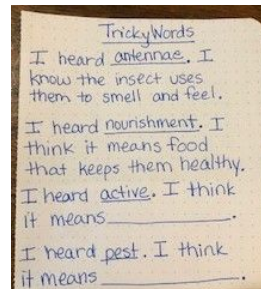 Tricky Words
I heard antennae. I
know the insect uses
them to smell and feel.
I heard nourishment. I
think it means food
that keeps them healthy.
I heard active. I think
it means____________.
I heard pest. I think
it means____________.